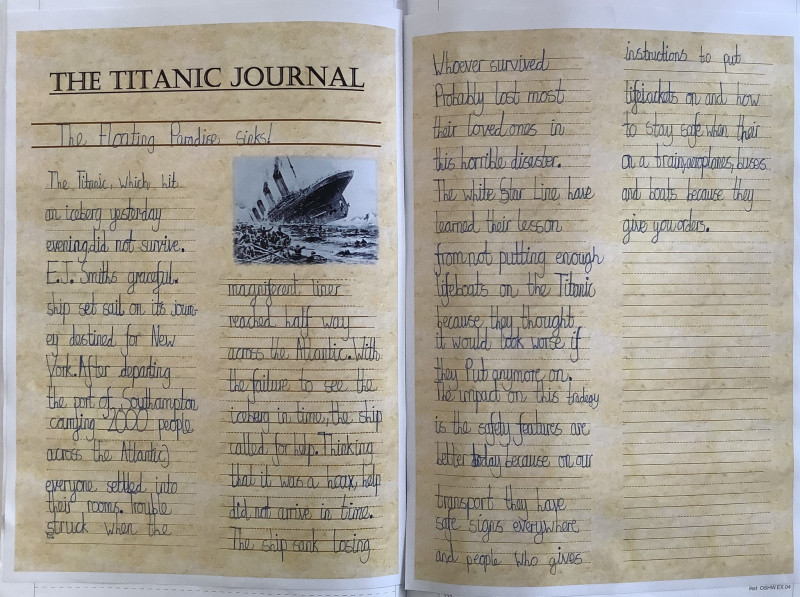 THE TITANIC JOURNAL
The Floating Paradise sinks!
The Titanic, which hit
an iceberg yesterday
evening did not survive.
E.J. Smiths graceful
ship set sail on its journ-
ey destined for New
York. After departing
the port of Southampton
carrying 2000 people
across the Atlantic,
everyone settled into
their rooms. Trouble
struck when the
magnificent liner
reached half way
across the Atlantic. With
the failure to see the
iceberg in time, the ship
called for help. Thinking
that it was a hoax, help
did not arrive in time.
The ship sank losing
Whoever survived
Probably lost most
their loved ones in
this horrible disaster.
The white Star Line have
learned their lesson
from not putting enough
lifeboats on the Titanic
because they thought
it would look worse if
they Put anymore on.
The impact on this tradegy
is the safety features are
better today because on our
transport they have
safe signs everywhere
and people who gives
instructions to put
lifejackets on and how
to stay safe when their
on a train, aeroplanes, buses
and boats because they
give you orders.
Ref: OSHW EX 04